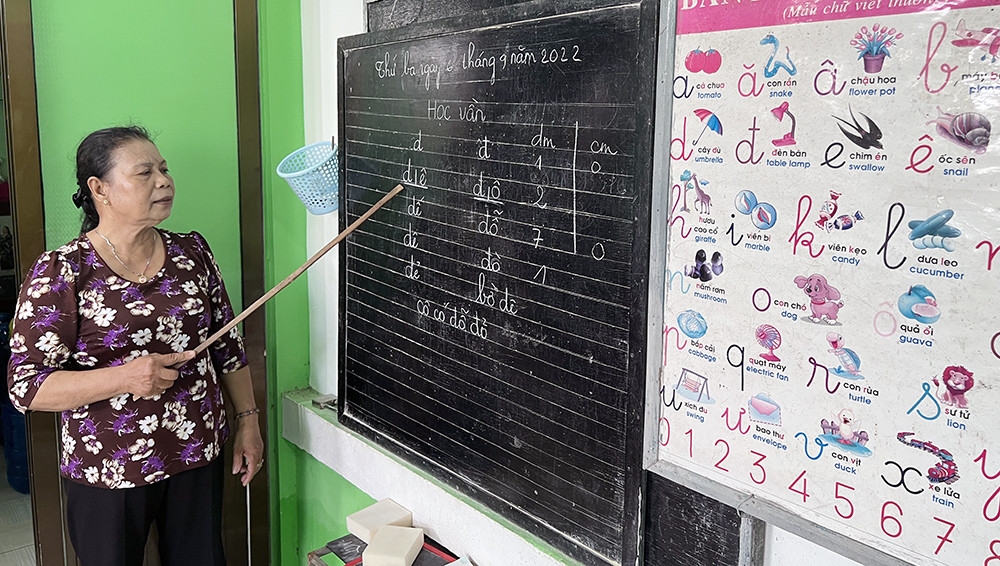 Thứ ba ngày 6 tháng 9 năm 2022
Học vần
d đ dm cm
1 0
d1ê đ1ô 2
dế đỗ 7 0
dê đồ 1
dê bờ đê
cô có đỗ đỏ
(Mẫu chữ viết thường)
a cà chua tomato
ă con rắn snake
â chậu hoa flower pot
b
d cây dù umbrella
đ đèn bàn table lamp
e chim én swallow
ê ốc sên snail
h hươu cao cổ giraffe
i viên bi marble
k viên kẹo candy
l dưa leo cucumber
n nấm rơm mushroom
o con chó dog
ô quả ổi guava
bắp cải cabbage
q quạt máy electric fan
r con rùa turtle
s sư tử lion
u xích đu swing
ư bao thư envelope
v con vịt duck
x xe lửa train
y
0 1 2 3 4 5 6 7